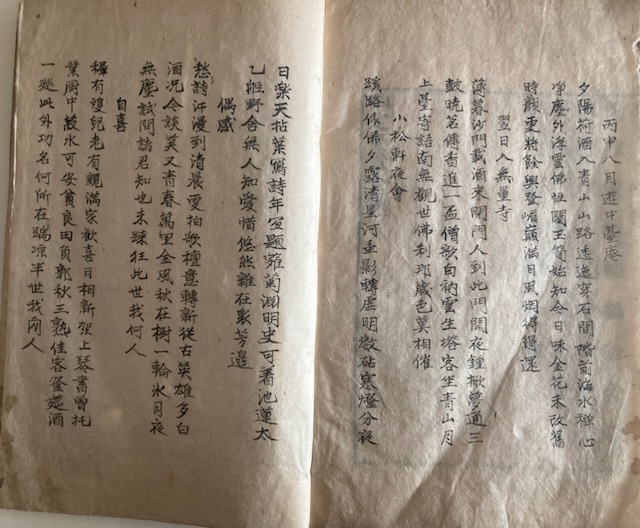 丙申八月遊中基庵
夕陽荷酒入青山山路逶迤穿石關檐前海水種心
淨塵外浮雲佛性閒玉簡始知今日味金花未改舊
時顏更將餘興登嵋巔滿目風烟得得還
翌日入無量寺
薄暮沙門載酒來閉門人到此門開夜鍾撤夢通三
鼓曉茗傳香進一盃僧歌白衲雲生塔客坐青山月
上臺寄語南無觀世佛刹那歲色莫相催
小松軒夜會
蹊路依俙夕露清星河垂影轉虛明數砧寒燈分夜
日樂天拈葉寫詩年宜題雜菊淵明史可看池蓮太
乙船野舍無人知愛惜悠然離在衆芳邊
偶感
愁詩汗漫到清晨爱拍歌檀意轉新從古英雄多白
酒况今談笑又青春萬里金風秋在樹一輪氷月夜
無塵試問諸君知也未踈狂此世我何人
自喜
穉有瓊兒老有親滿家歡喜日相新架上琴書曾托
業厨中菽水可安貧良田負郭秋三熟佳客登筵酒
一巡此外功名何所在踽凉半世我閑人